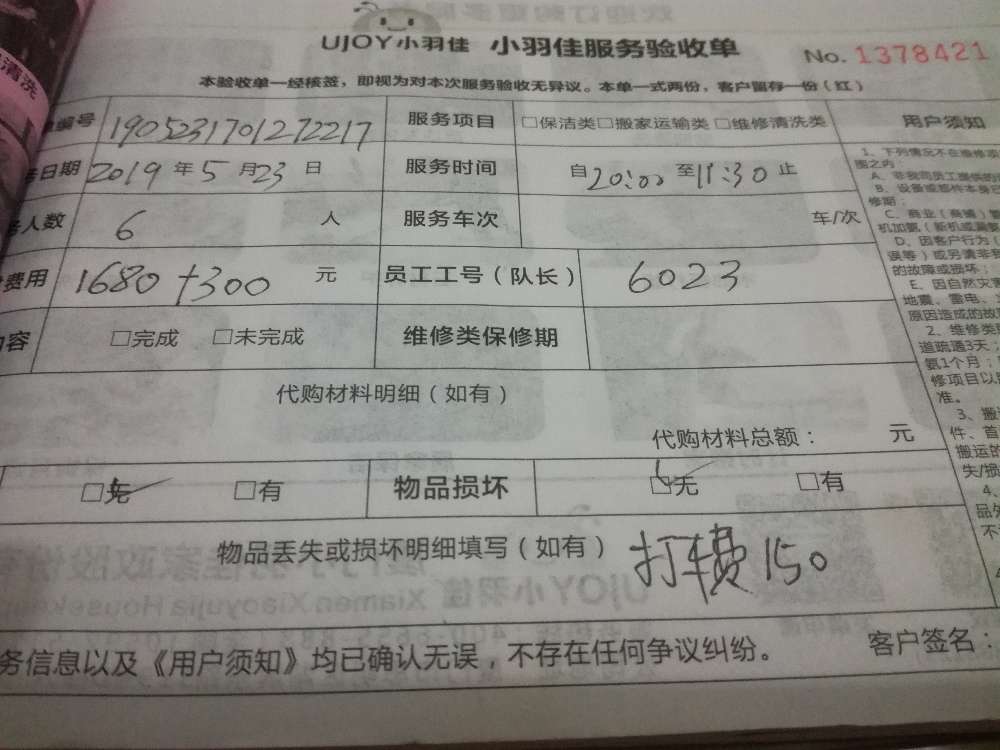 清洗
UJOY小羽佳 小羽佳服务验收单 No. 1378421
本验收单一经核签，即视为对本次服务验收无异议。本单一式两份，客户留存一份（红）
编号 1905231701272217 服务项目 □保洁类□搬家运输类□维修清洗类 用户须知
日期 2019年5月23日 服务时间 自20:00至11:30止
人数 6 人 服务车次 车/次
费用 1680+300 元 员工工号（队长） 6023
内容 □完成 □未完成 维修类保修期
代购材料明细（如有）
代购材料总额： 元
□无 □有 物品损坏 □无 □有
物品丢失或损坏明细填写（如有） 打车费150
务信息以及《用户须知》均已确认无误，不存在任何争议纠纷。 客户签名：
1、下列情况不在维修项
围之内：
A、非我司员工提供的
B、设备或部件本身已
修期；
C、商业（商铺）
机加氨（新机或漏氨
D、因客户行为（
误等）或另请非我
的故障或损坏；
E、因自然灾害
地震、雷电、
原因造成的故
2、维修类
道疏通3天；
氨1个月；
修项目以
准。
3、搬
件、首
搬运的
失/损
4、
品外
不